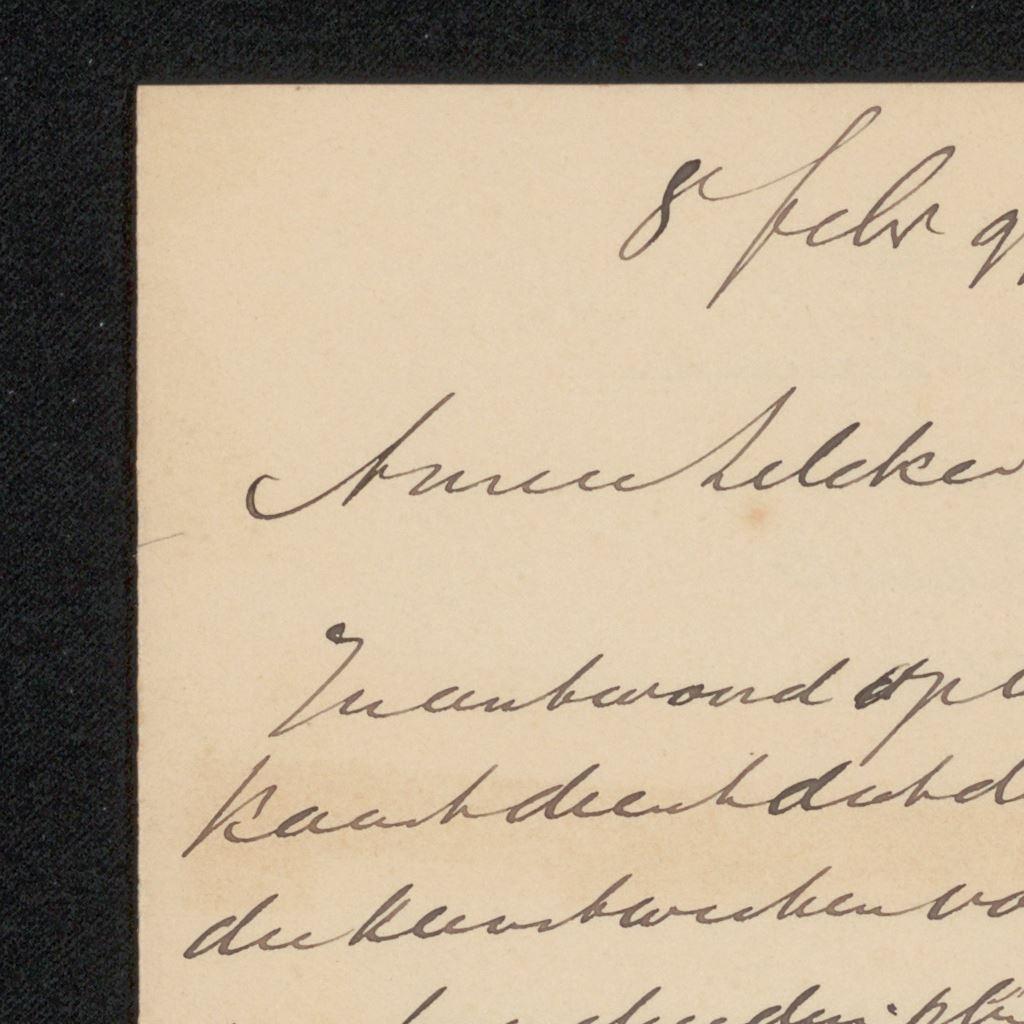 8 febr 9
Amice Zilcken
In antwoord op
Kaart dient dat d
der kunstwerken vo